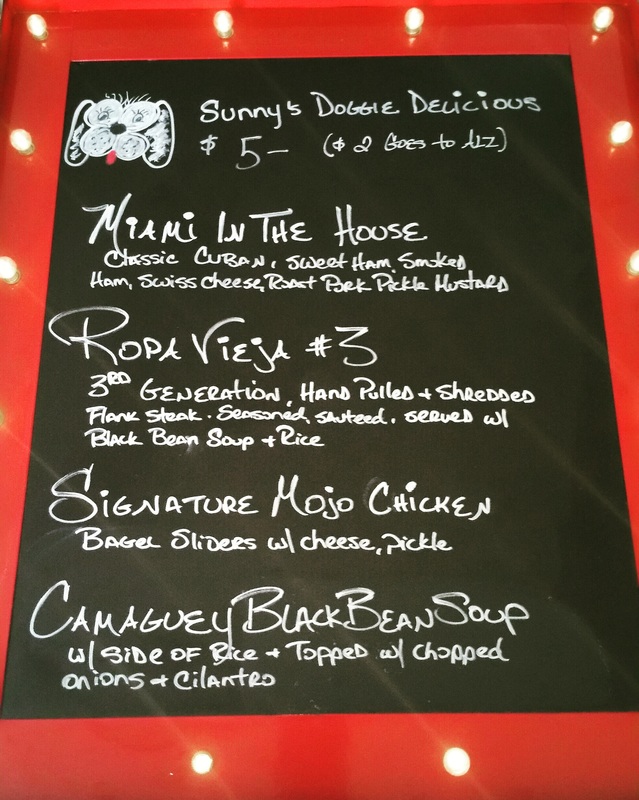 Sunny's Doggie Delicious
$ 5- ($ 2 Goes to ALZ)
Miami In The House
Classic Cuban, Sweet Ham, Smoked
Ham, Swiss Cheese, Roast Pork Pickle Mustard
Ropa Vieja #3
3RD Generation, Hand Pulled + Shredded
Flank Steak. Seasoned, sauteed, served w/
Black Bean Soup + Rice
Signature Mojo Chicken
Bagel Sliders w/ cheese, pickle
Camaguey Black Bean Soup
w/ side of Rice + Topped w/ chopped
onions + Cilantro